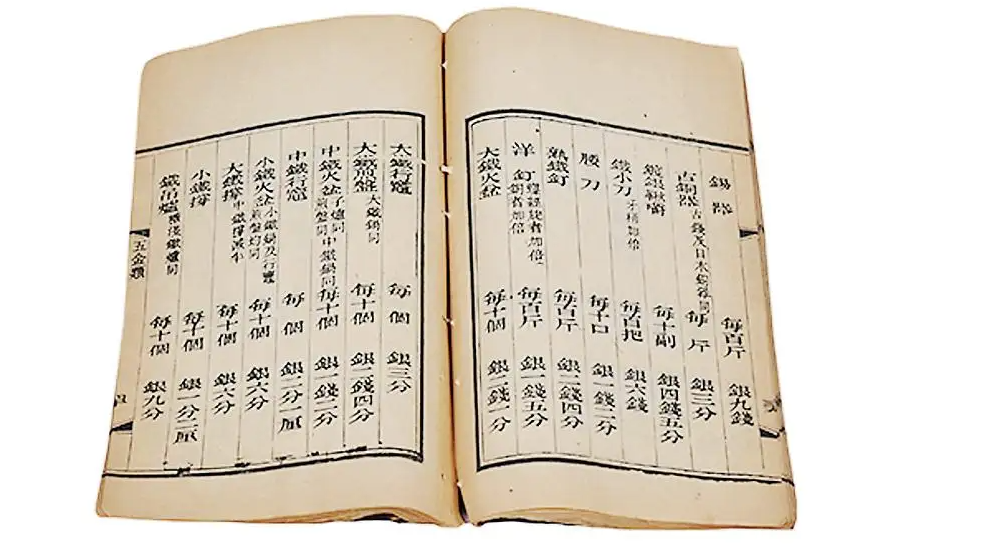 錫器 每百斤 銀九錢
古銅器 古錢及日本銅器同 每斤 銀三分
每十副 銀四錢五分
鐵小刀 加倍 每百把 銀六錢
腰刀 每十口 銀一錢二分
熟鐵釘 每百斤 銀二錢四分
洋釘 加倍 銅者加倍 每百斤 銀一錢五分
大鐵火盆 每十個 銀二錢一分
大鐵行竈 每個 銀三分
大鐵煎盤 大鐵鍋同 每十個 銀二錢四分
中鐵火盆 子爐同 煎盤同 中鐵鍋同 每十個 銀一錢二分
中鐵行竈 每個 銀二分一厘
小鐵火盆 小鐵鍋及行竈煎盤均同 每十個 銀六分
大鐵撑 中鐵撑減半 每十個 銀六分
小鐵撑 每十個 銀一分二厘
鐵吊爐 鐵爐同 每十個 銀九分
五金類